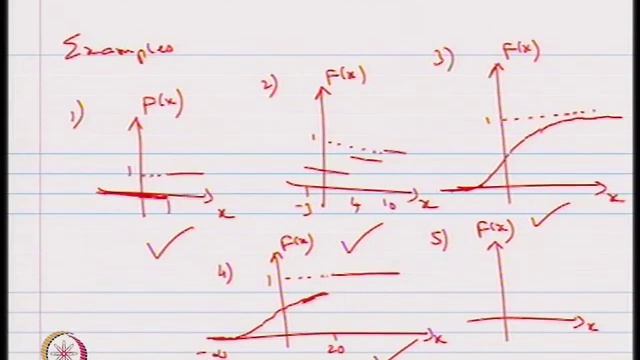 Examples
1) F(x) 1 1 x
2) F(x) 1 -3 4 10 x
3) F(x) 1 x
4) F(x) 1 -∞ 20 x
5) F(x) x